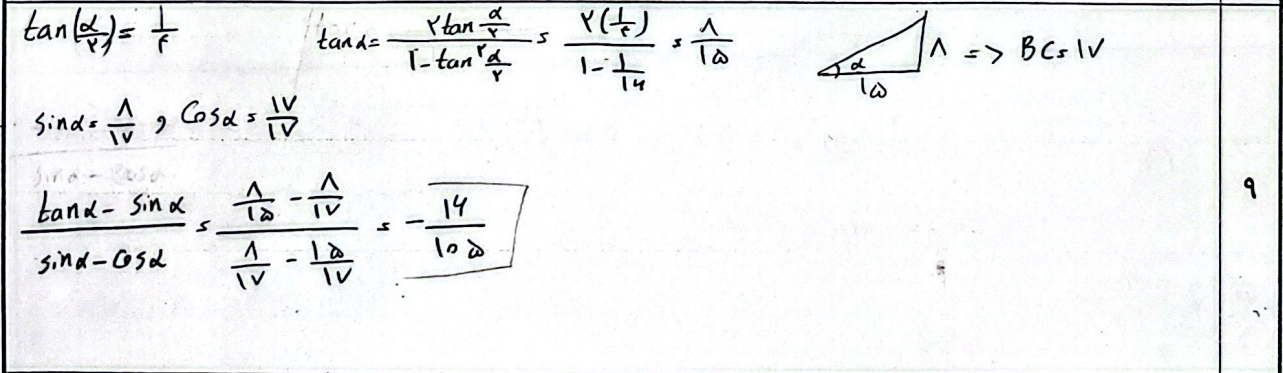 tan(α/۲) = ۱/۴  tanα = (۲tan α/۲)/(۱-tan^۲ α/۲) = (۲(۱/۴))/(۱-۱/۱۶) = ۸/۱۵  α ۱۵ ۸ => BC = ۱۷
sinα = ۸/۱۷ , Cosα = ۱۷/۱۷
sinα - cosα
(tanα - sinα)/(sinα - cosα) = (۸/۱۵ - ۸/۱۷)/(۸/۱۷ - ۱۵/۱۷) = -۱۶/۱۰۵
۹